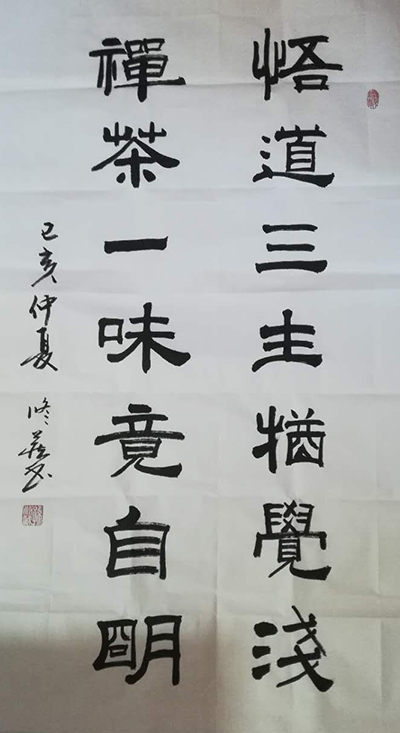 悟道三生猶覺淺
禪茶一味竟自明
己亥仲夏